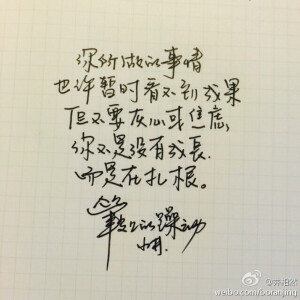 你所做的事情
也许暂时看不到成果
但不要灰心或焦虑,
你不是没有成长,
而是在扎根。
笔尖以躁动
weibo.com/boranjing